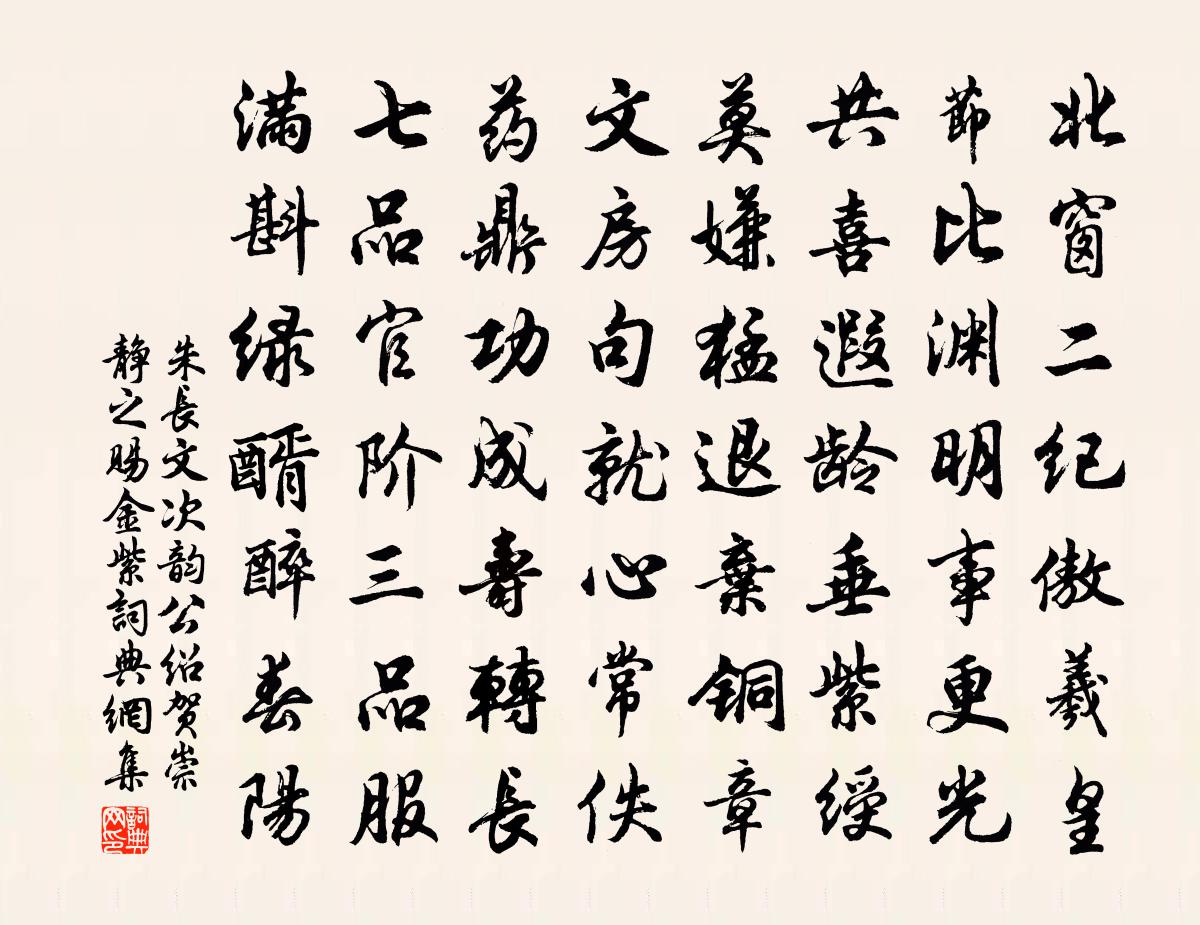 北窗二纪傲羲皇
莭比渊明事更光
共喜遐龄垂紫绶
莫嫌猛退棄铜章
文房句就心常佚
药鼎功成壽轉长
七品官阶三品服
满斟绿醑醉春陽
朱長文次韵公绍贺崇
静之賜金紫詞典網集
詞典网印